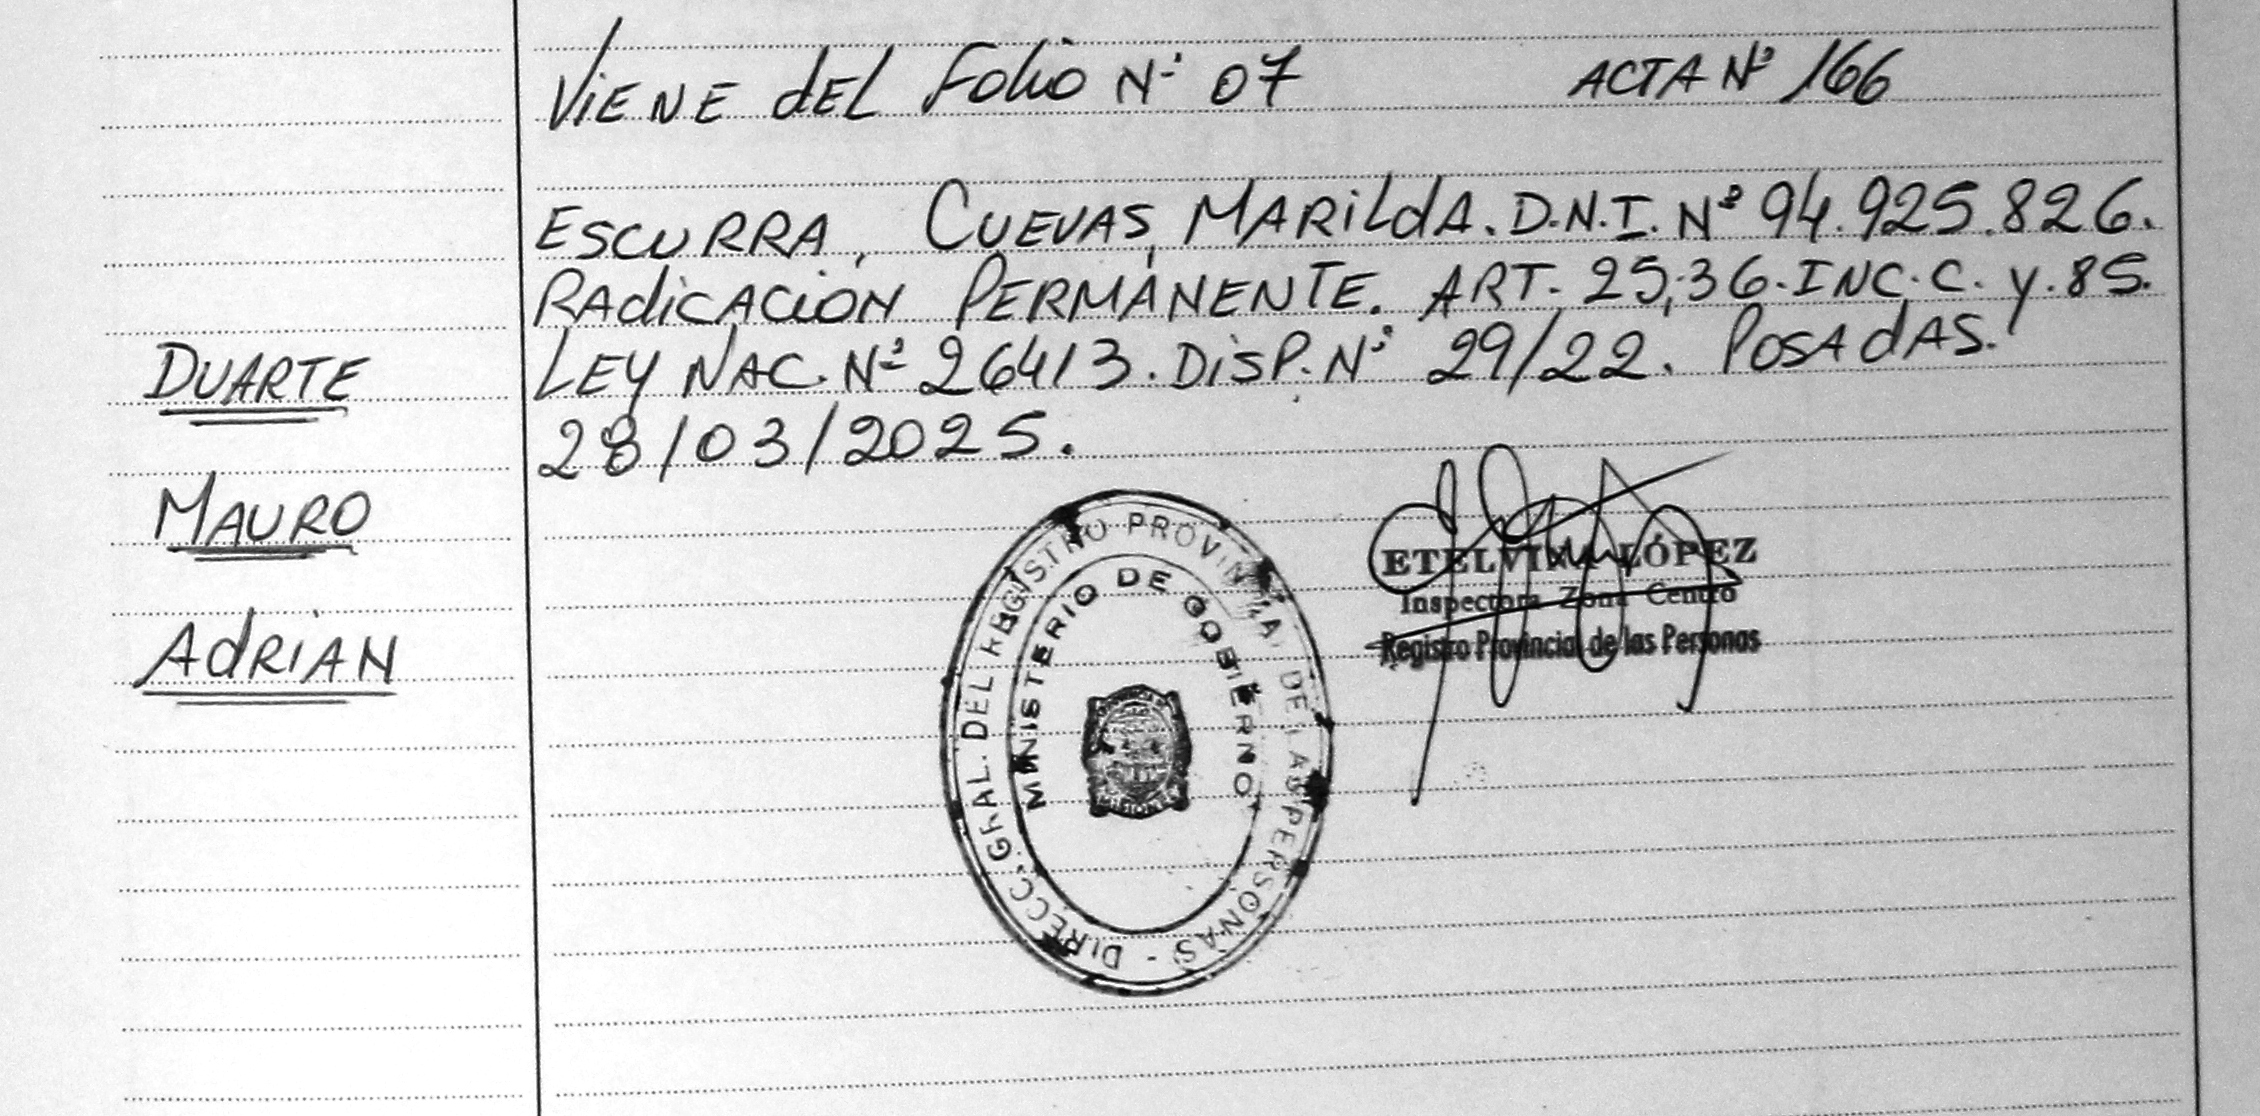 VIENE dEL Folio Nº 07 ACTA Nº 166
ESCURRA, CUEVAS, MARILdA. D.N.I. Nº 94.925.826.
RAdiCACIÓN PERMANENTE. ART. 25,36.INC.C. y.85.
LEY NAC. Nº 26413. DiSP. Nº 29/22. POSAdAS.
28/03/2025.
DUARTE
MAURO
AdRiAN
DIRECC. GRAL. DEL REGISTRO PROVINCIAL DE LAS PERSONAS -
MINISTERIO DE GOBIERNO
MISIONES
ETELVINA LÓPEZ
Inspectora Zona Centro
Registro Provincial de las Personas